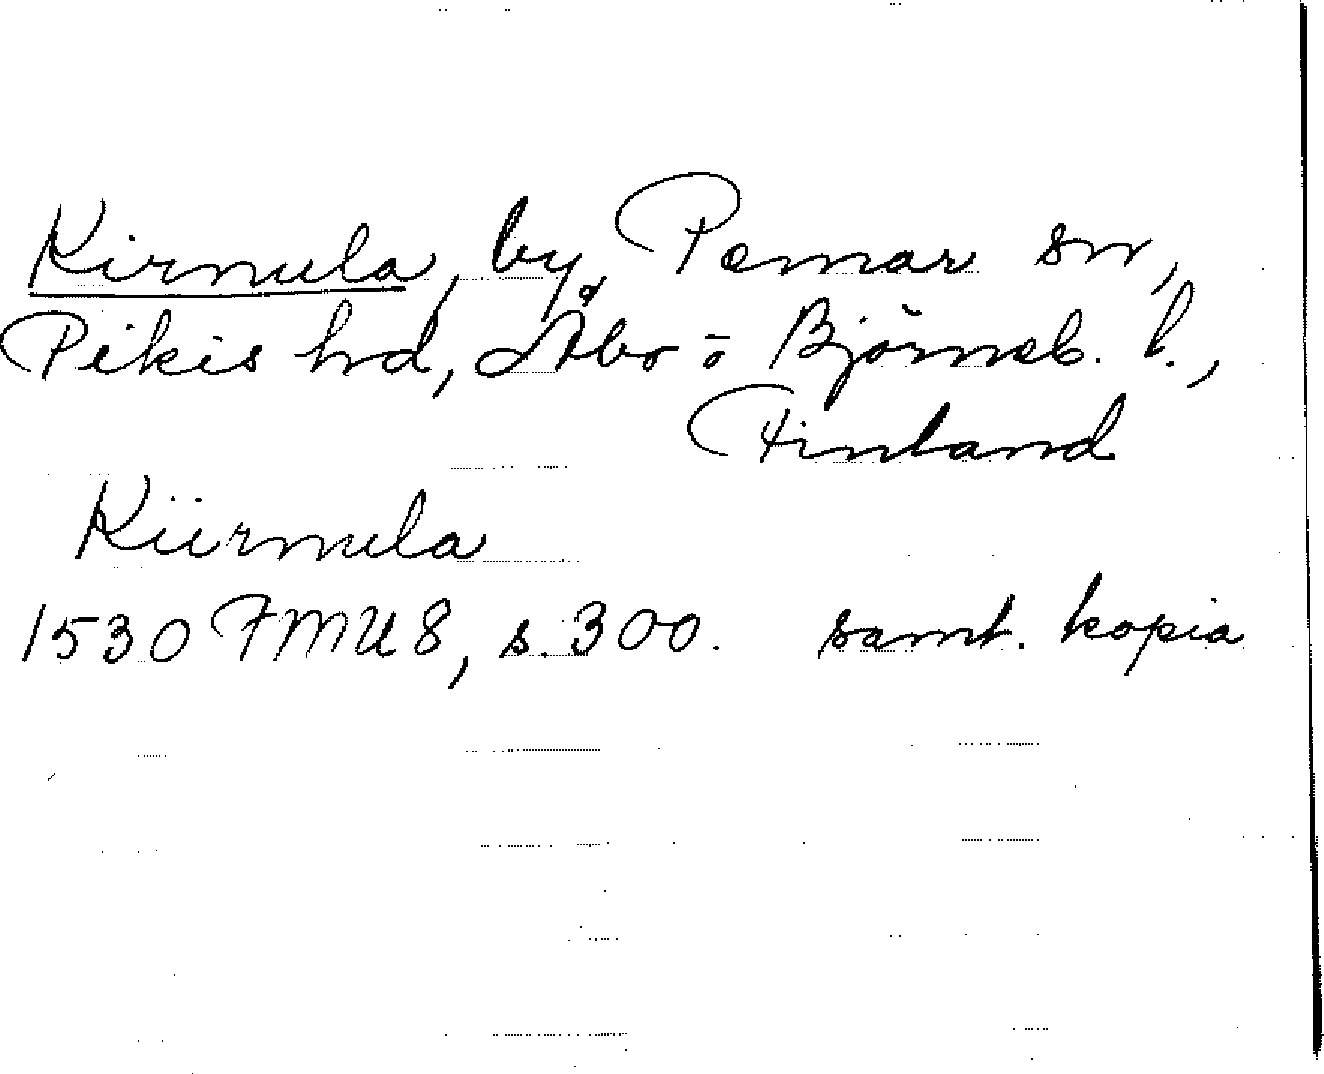 Kirmula, by, Pemar sn,
Pikis hd, Åbo o Björneb. l.,
Finland
Kiirmula
1530 FMU 8, s. 300. samt. kopia